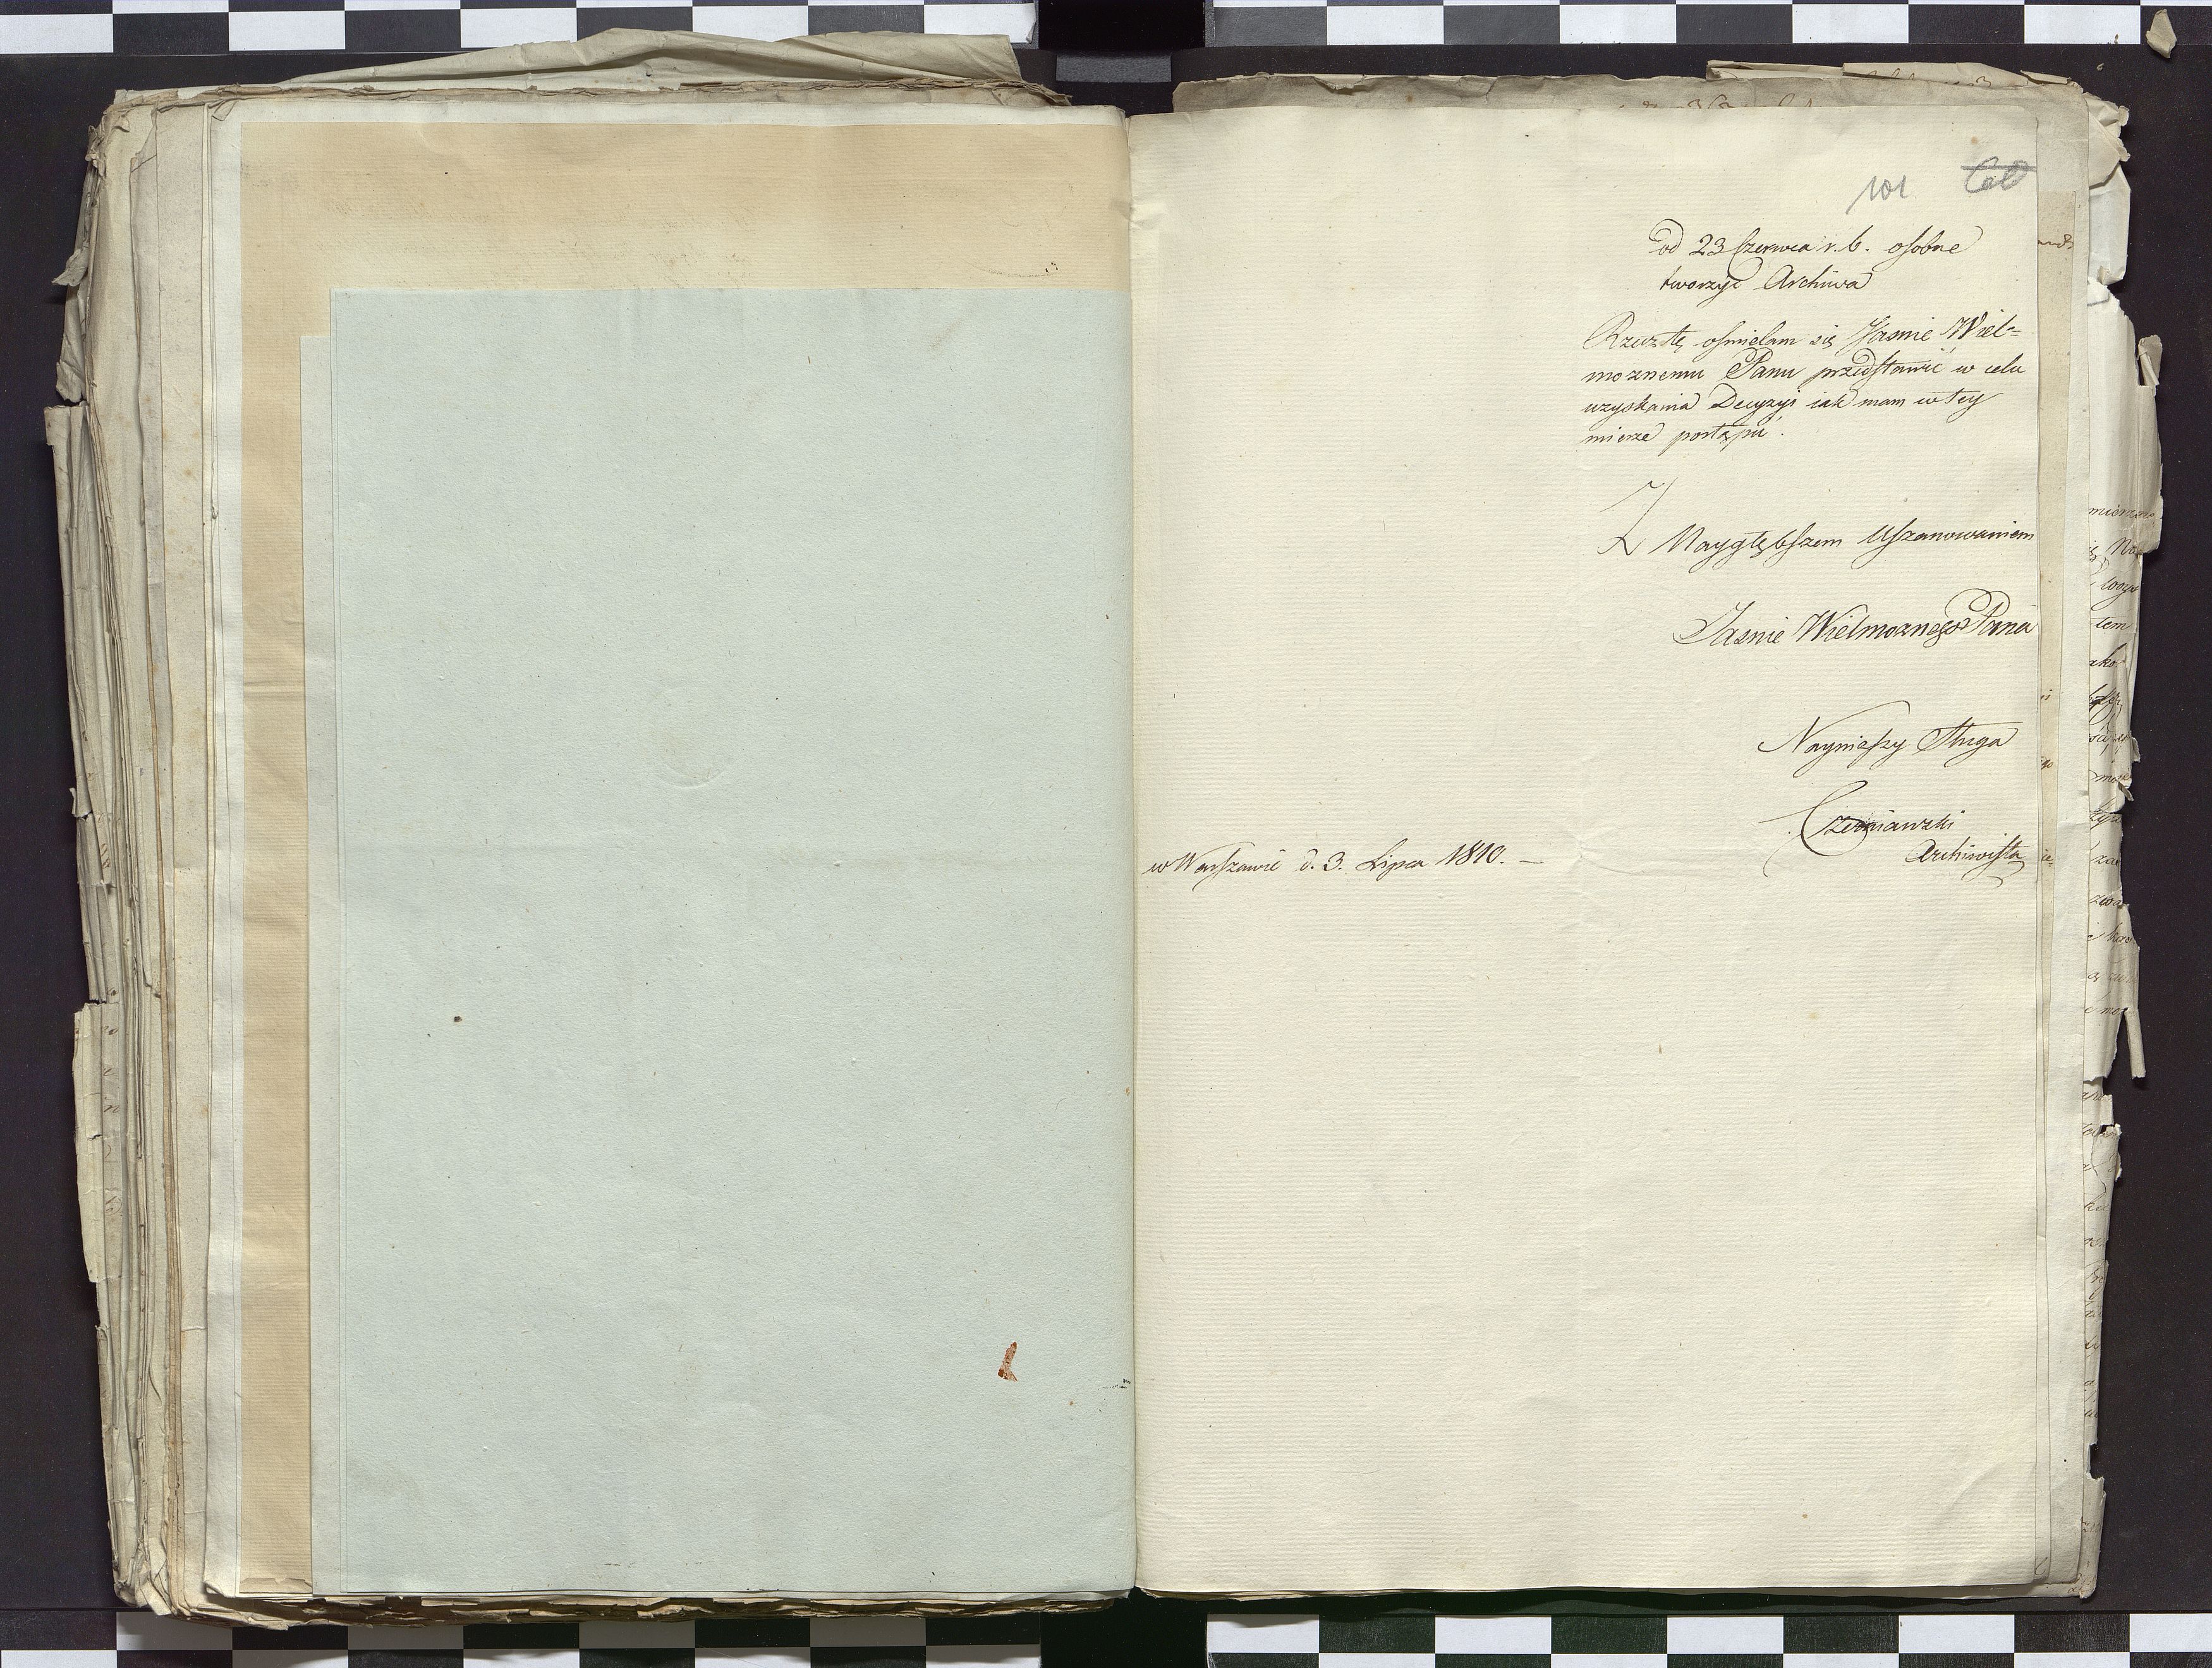 101
od 23 Czerwca r. b. osobne
tworzyć Archiwa
Rzecz tę ośmielam się Jaśnie Wiel=
moznemu Panu przedstawić w celu
uzyskania Decyzyi iak mam w tey
mierze postąpić.
Z Naygłębszem Uszanowaniem
Jasnie Wielmoznego Pana
Nayniższy Sługa
Czerniawski
Archiwista
w Warszawie d. 3. Lipca 1810. —